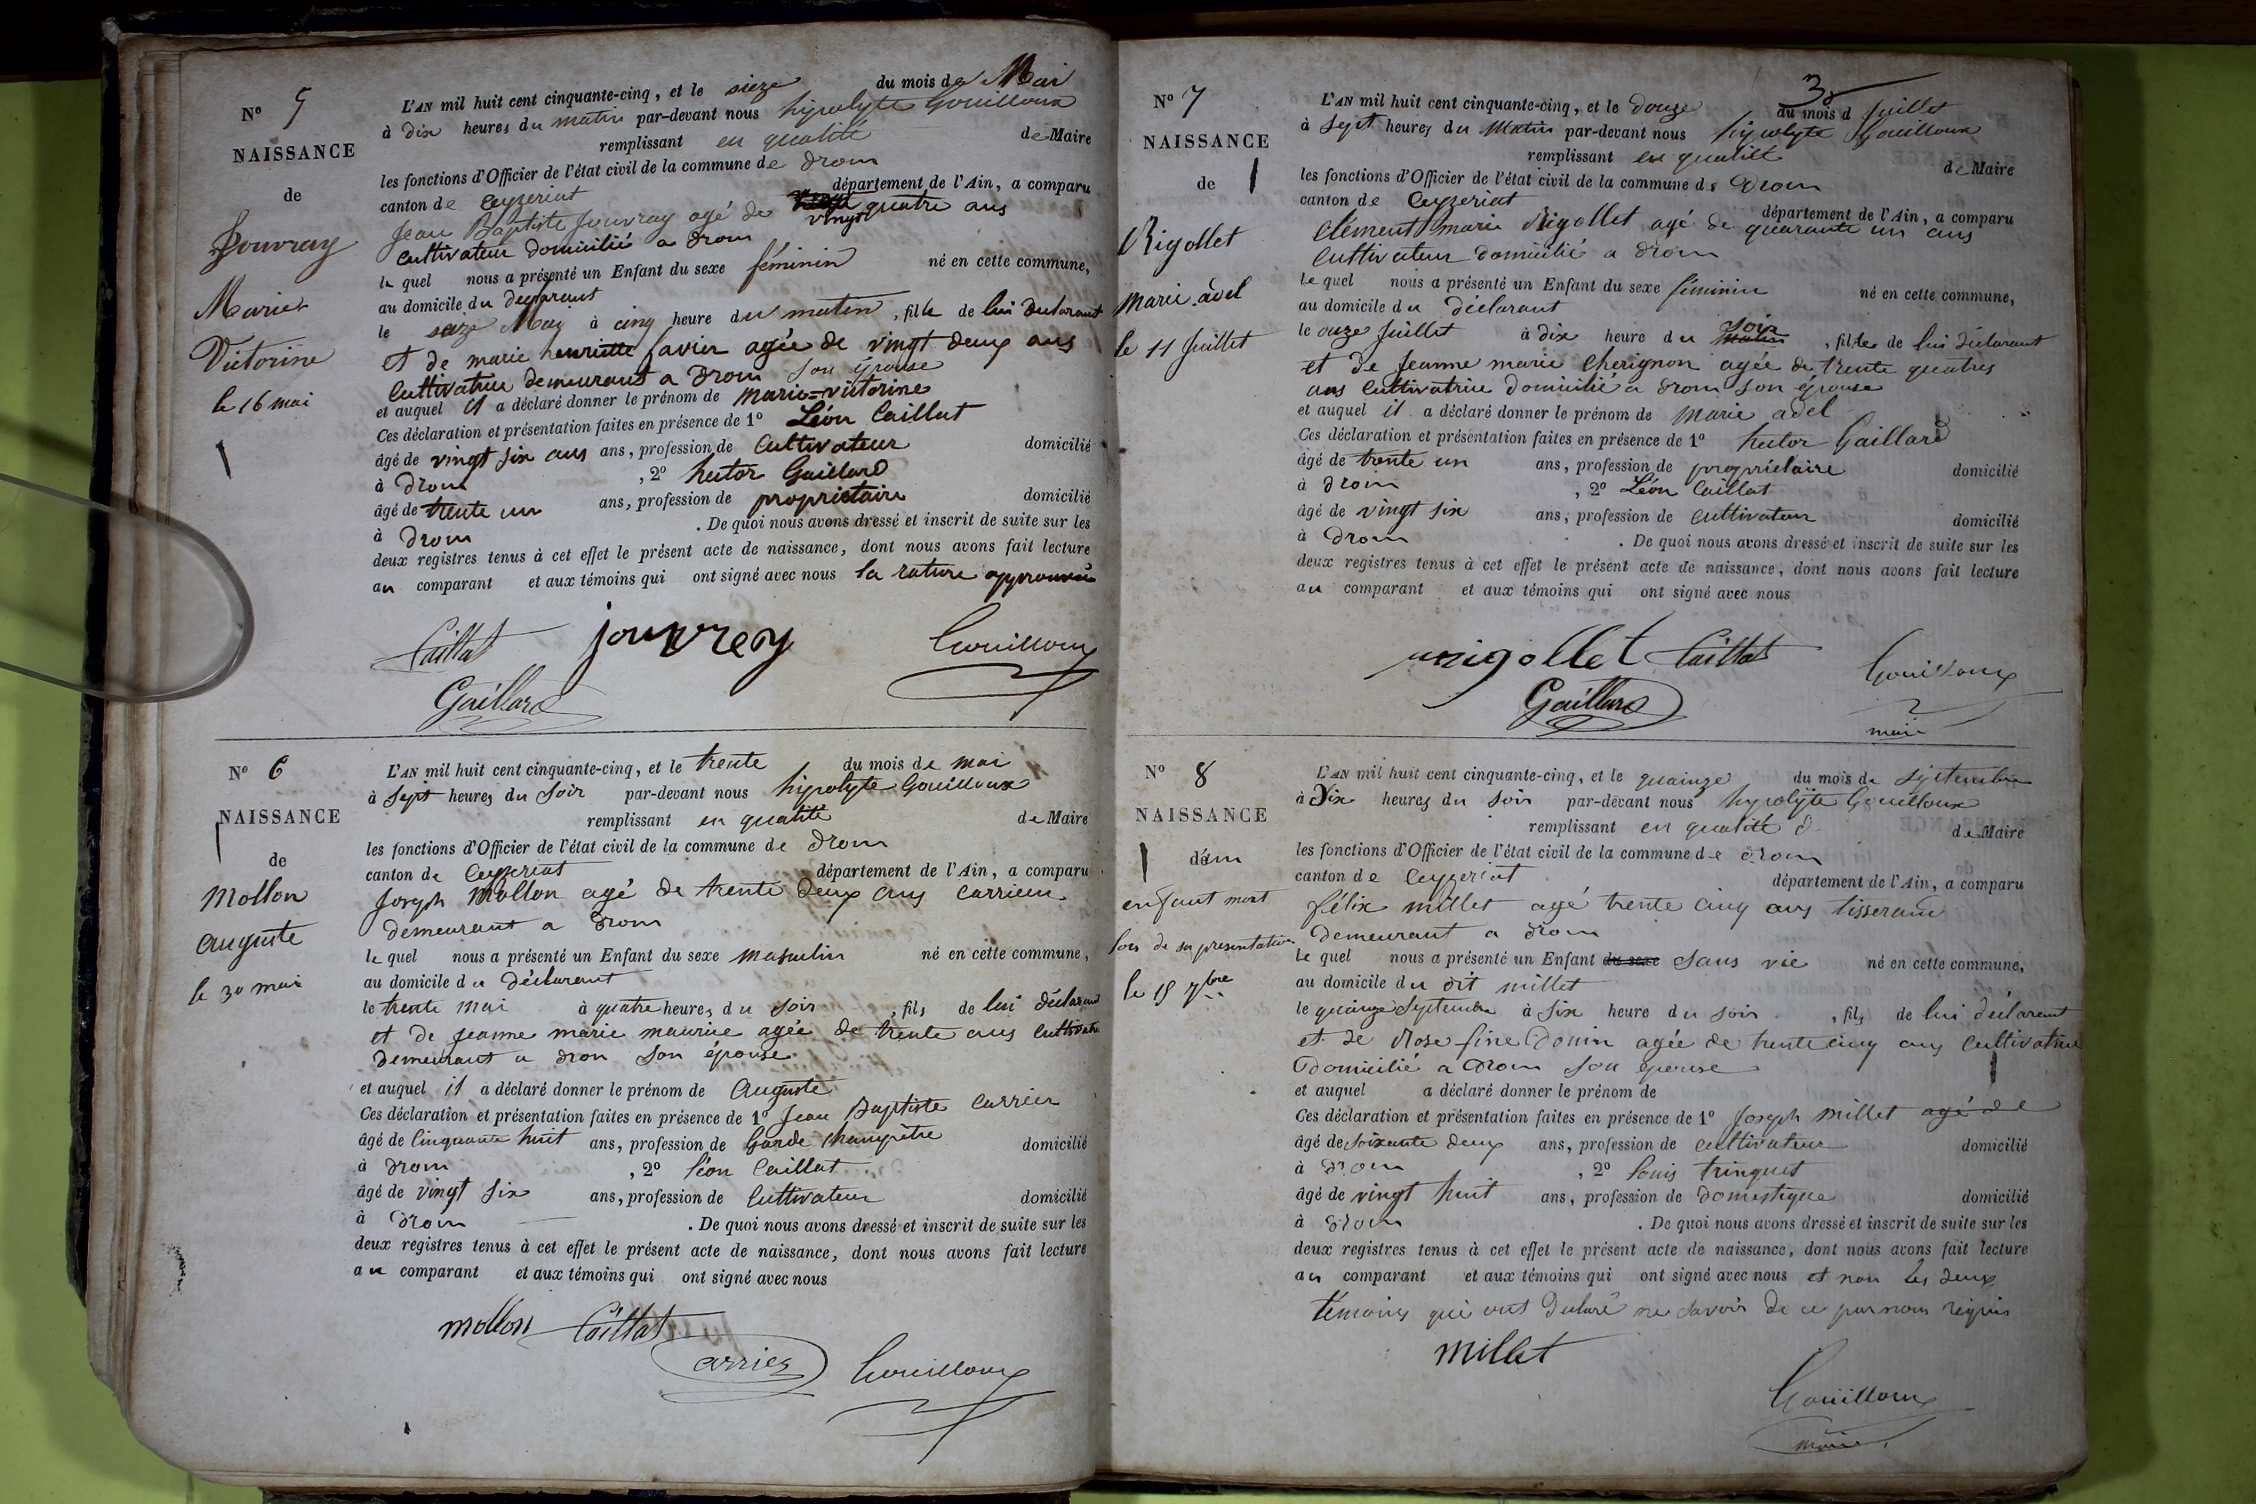 N° 5
NAISSANCE
de
Jouvray
Marie
Victorine
le 16 mai
L'AN mil huit cent cinquante-cinq, et le sieze du mois de Mai
à dix heures du matin par-devant nous hipolyte Gouilloux
remplissant en qualité de Maire
les fonctions d'Officier de l'état civil de la commune de drom
canton de Ceyzeriat département de l'Ain, a comparu
Jean Baptiste Jouvray agé de vingt quatre ans
cultivateur domicilié a drom
le quel nous a présenté un Enfant du sexe féminin né en cette commune,
au domicile du declarant
le seize Mai à cinq heure du matin, fille de lui declarant
et de marie henriette favier agée de vingt deux ans
Cultivatrice demeurant a drom son épouse
et auquel il a déclaré donner le prénom de marie=victorine
Ces déclaration et présentation faites en présence de 1° Léon Caillat
âgé de vingt six ans ans, profession de Cultivateur domicilié
à drom, 2° hector Gaillard
âgé de trente un ans, profession de proprietaire domicilié
à drom. De quoi nous avons dressé et inscrit de suite sur les
deux registres tenus à cet effet le présent acte de naissance, dont nous avons fait lecture
au comparant et aux témoins qui ont signé avec nous la rature approuvée
Caillat jouvray Gouilloux
Gaillard
N° 6
NAISSANCE
de
Mollon
auguste
le 30 mai
L'AN mil huit cent cinquante-cinq, et le trente du mois de mai
à sept heures du soir par-devant nous hipolyte Gouilloux
remplissant en qualité de Maire
les fonctions d'Officier de l'état civil de la commune de drom
canton de Ceyzeriat département de l'Ain, a comparu
Joseph Mollon agé de trente deux ans carrieur
demeurant a drom
le quel nous a présenté un Enfant du sexe masculin né en cette commune,
au domicile du déclarant
le trente mai à quatre heures du soir, fils de lui déclarant
et de jeanne marie maurice agée de trente ans cultivatrice
demeurant a drom son épouse
et auquel il a déclaré donner le prénom de Auguste
Ces déclaration et présentation faites en présence de 1° Jean Baptiste Carrier
âgé de Cinquante huit ans, profession de Garde champêtre domicilié
à drom, 2° Léon Caillat
âgé de vingt six ans, profession de Cultivateur domicilié
à drom. De quoi nous avons dressé et inscrit de suite sur les
deux registres tenus à cet effet le présent acte de naissance, dont nous avons fait lecture
au comparant et aux témoins qui ont signé avec nous
mollon Caillat
carrier Gouilloux
3
N° 7
NAISSANCE
de
Rigollet
marie adel
le 11 Juillet
L'AN mil huit cent cinquante-cinq, et le douze du mois d Juillet
à sept heures du Matin par-devant nous hipolyte Gouilloux
remplissant en qualité de Maire
les fonctions d'Officier de l'état civil de la commune de Drom
canton de Ceyzeriat département de l'Ain, a comparu
Clément marie Rigollet agé de quarante un ans
Cultivateur domicilié a drom
le quel nous a présenté un Enfant du sexe féminin né en cette commune,
au domicile du déclarant
le onze Juillet à dix heure du soir, fille de lui déclarant
et de Jeanne marie Cherignon agée de trente quatres
ans Cultivatrice domicilié a drom son épouse
et auquel il a déclaré donner le prénom de marie adel
Ces déclaration et présentation faites en présence de 1° hector Gaillard
âgé de trente un ans, profession de proprietaire domicilié
à drom, 2° Léon Caillat
âgé de vingt six ans, profession de Cultivateur domicilié
à drom. De quoi nous avons dressé et inscrit de suite sur les
deux registres tenus à cet effet le présent acte de naissance, dont nous avons fait lecture
au comparant et aux témoins qui ont signé avec nous
rigollet Caillat Gouilloux
Gaillard maire
N° 8
NAISSANCE
d'un
enfant mort
lors de sa presentation
le 15 7bre
L'AN mil huit cent cinquante-cinq, et le quainze du mois de septembre
à Dix heures du soir par-devant nous hypolyte Gouilloux
remplissant en qualité d de Maire
les fonctions d'Officier de l'état civil de la commune de drom
canton de Ceyzeriat département de l'Ain, a comparu
félix millet agé trente cinq ans tisserand
demeurant a drom
le quel nous a présenté un Enfant du sexe sans vie né en cette commune,
au domicile du dit millet
le quainze Septembre à six heure du soir, fils de lui déclarant
et de Rose fine Donin agée de trente cinq ans cultivatrice
domicilié a Drom son épouse
et auquel a déclaré donner le prénom de
Ces déclaration et présentation faites en présence de 1° Joseph millet agé de
âgé de soixante deux ans, profession de cultivateur domicilié
à drom, 2° louis tringuet
âgé de vingt huit ans, profession de domestique domicilié
à drom. De quoi nous avons dressé et inscrit de suite sur les
deux registres tenus à cet effet le présent acte de naissance, dont nous avons fait lecture
au comparant et aux témoins qui ont signé avec nous et non les deux
témoins qui ont declaré ne savoir de ce par nous requis
millet
Gouilloux
maire